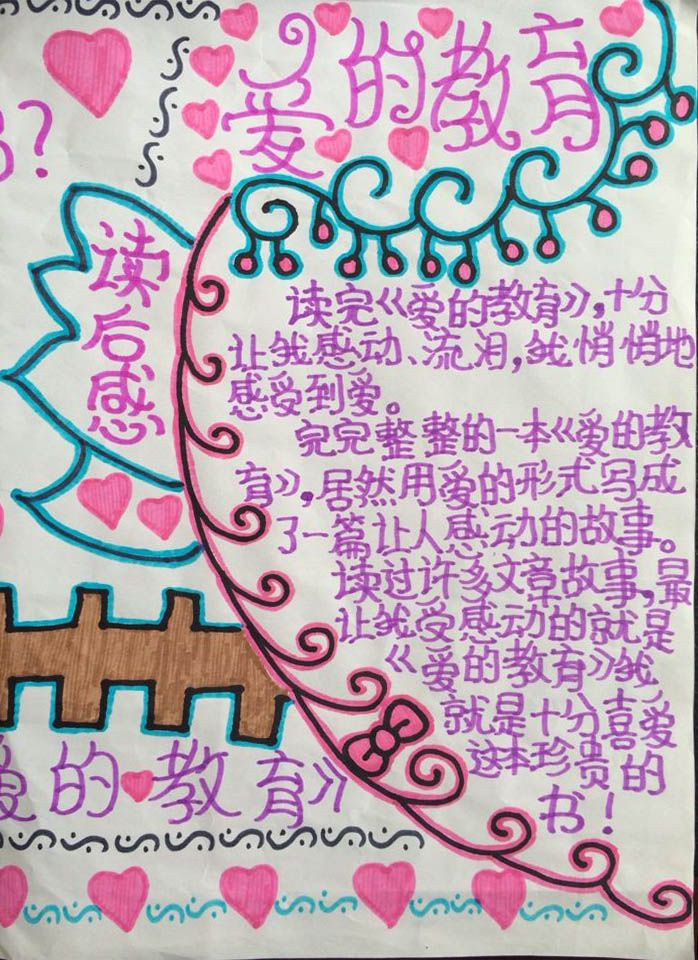 爱的教育
?
读后感
读完《爱的教育》,十分
让我感动、流泪,我悄悄地
感受到爱。
完完整整的一本《爱的教
育》,居然用爱的形式写成
了一篇让人感动的故事。
读过许多文章故事,最
让我受感动的就是
《爱的教育》我
就是十分喜爱
这本珍贵的
书!
爱的教育》